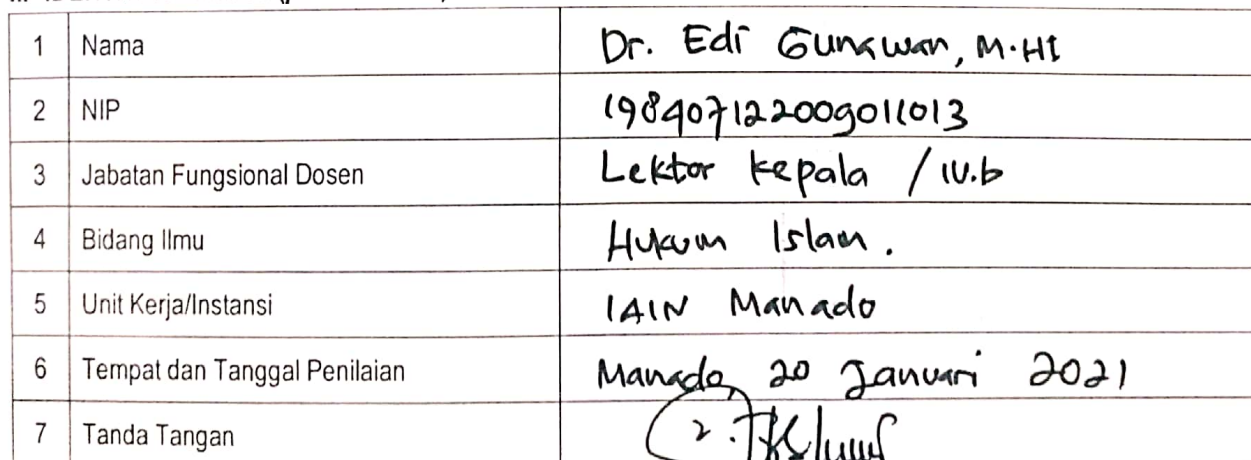 1 Nama Dr. Edi Gunawan, M.HI
2 NIP 198407122009011013
3 Jabatan Fungsional Dosen Lektor Kepala / IV.b
4 Bidang Ilmu Hukum Islam.
5 Unit Kerja/Instansi IAIN Manado
6 Tempat dan Tanggal Penilaian Manado, 20 Januari 2021
7 Tanda Tangan